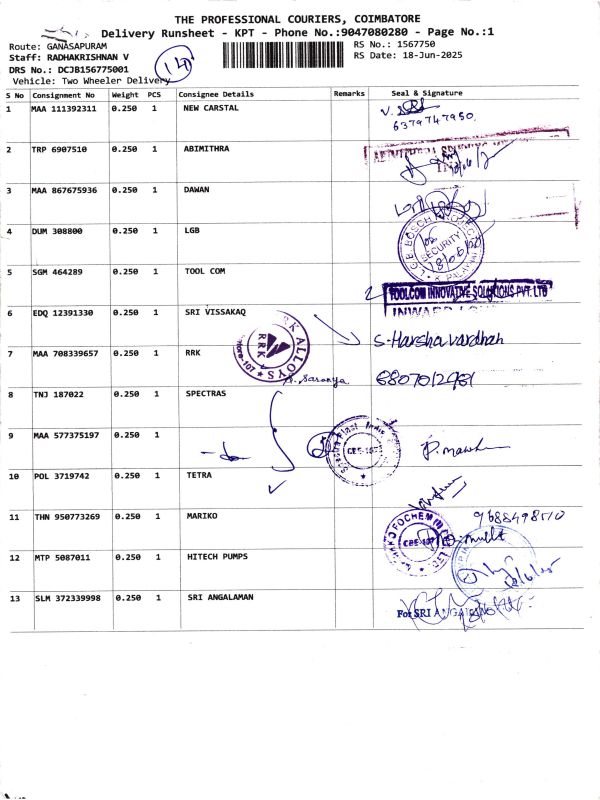 THE PROFESSIONAL COURIERS, COIMBATORE
Delivery Runsheet - KPT - Phone No.:9047080280 - Page No.:1
Route: GANASAPURAM
RS No.: 1567750
Staff: RADHAKRISHNAN V
RS Date: 18-Jun-2025
DRS No.: DCJB156775001
14
Vehicle: Two Wheeler Delivery
S No Consignment No Weight PCS Consignee Details Remarks Seal & Signature
1 MAA 111392311 0.250 1 NEW CARSTAL
6379747950
2 TRP 6907510 0.250 1 ABIMITHRA
3 MAA 867675936 0.250 1 DAWAN
4 DUM 308800 0.250 1 LGB
L.G.B. BOSCH
SECURITY
5 SGM 464289 0.250 1 TOOL COM
TOOLCOM INNOVATIVE SOLUTIONS PVT. LTD
INWARD
6 EDQ 12391330 0.250 1 SRI VISSAKAQ
S-Harsha vardhan
7 MAA 708339657 0.250 1 RRK
RRK ALLOYS
RRK
Saranya
6807012961
8 TNJ 187022 0.250 1 SPECTRAS
9 MAA 577375197 0.250 1
CBE-107
10 POL 3719742 0.250 1 TETRA
11 THN 950773269 0.250 1 MARIKO
9688498510
FOCHEM
CBE-107
12 MTP 5087011 0.250 1 HITECH PUMPS
13 SLM 372339998 0.250 1 SRI ANGALAMAN
For SRI